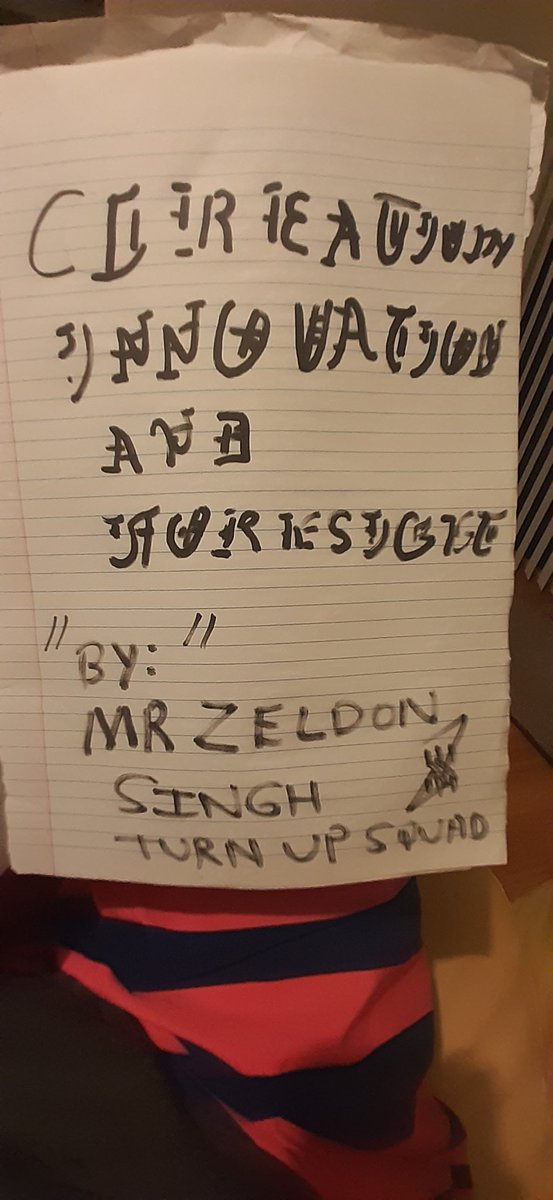 INNOVATION
AND
FORESIGHT
"BY:"
MR ZELDON
SINGH
TURN UP SQUAD